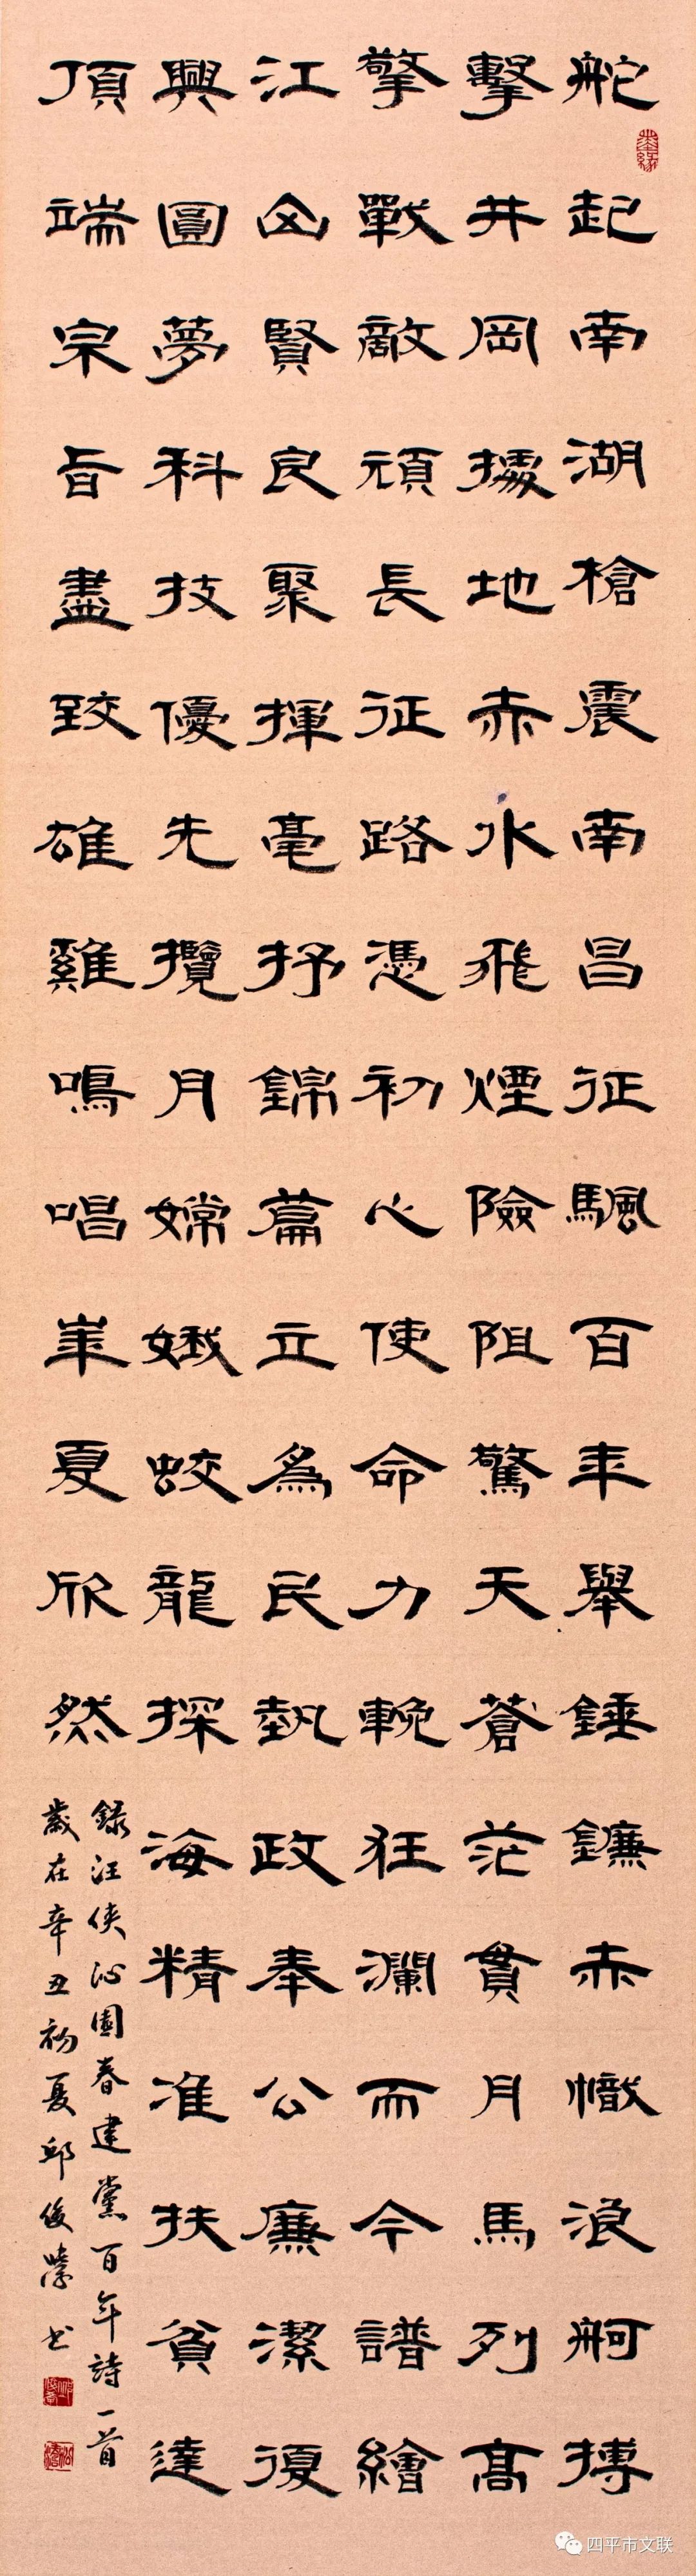 舵起南湖槍震南昌征颿百年舉錘鐮赤幟浪舸搏
擊井岡據地赤水飛煙險阻驚天蒼茫貫月馬列高
擎戰敵頑長征路憑初心使命力輓狂瀾而今譜繪
江山賢良聚揮毫抒錦篇立為民執政奉公廉潔復
興圓夢科技優先攬月嫦娥蛟龍探海精准扶貧達
頂端宗旨盡致雄雞鳴唱華夏欣然
錄汪俠沁園春建黨百年詩一首
歲在辛丑初夏邱俊書
四平市文联